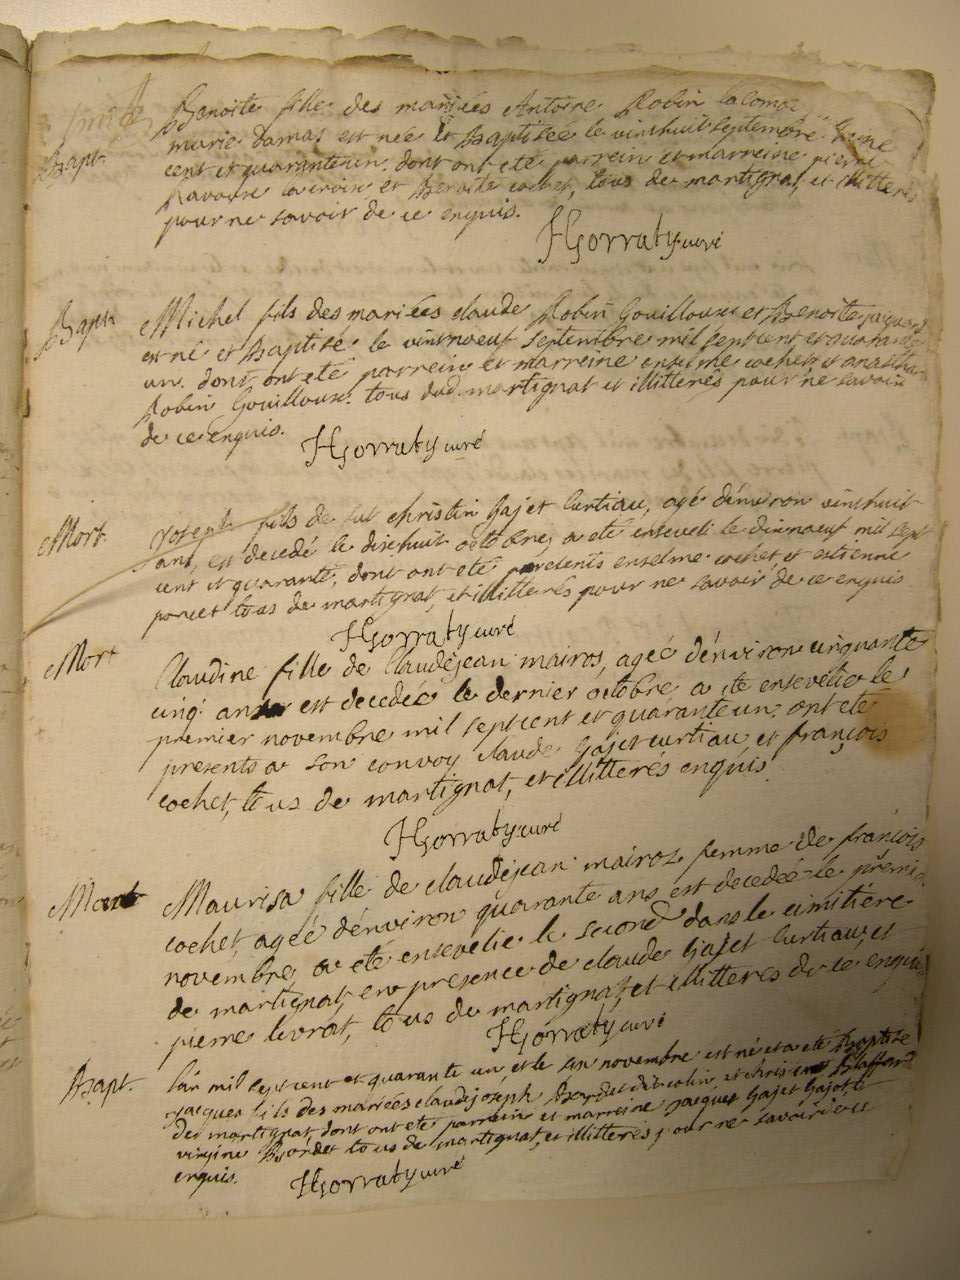 Bapt.
Benoite fille des mariées Antoine Robin lacomoz
marie Damas est née et Baptisée le vinthuit septembre
cent et quarante un. dont ont eté parrein et marreine pierre
Ravoux lacroix et Benoite cochet, tous de martignat, et illitterés
pour ne savoir de ce enquis.
HGorraty curé
Bapt.
Michel fils des mariées claude Robin Gouilloux et Benoite jacquard
est né et Baptisé le vintnoeuf septembre mil sept cent et quarante
un. dont ont eté parrein et marreine enselme cochet et
Robin Gouilloux. tous dud. martignat et illitterés pour ne savoir
de ce enquis.
HGorraty curé
Mort
joseph fils de fut christin Gajet Curtiau, agé d'environ vinthuit
ans, est decedé le dixhuit octobre, a eté enseveli le dixnoeuf mil sept
cent et quarante, dont ont eté presents enselme cochet, et estienne
poncet tous de martignat, et illitterés pour ne savoir de ce enquis
HGorraty curé
Mort
Claudine fille de Claudejean mairos, agée d'environ cinquante
cinq ans est decedée le dernier octobre a eté ensevelie le
premier novembre mil sept cent et quarante un. ont eté
presents a son convoy claude Gajet curtiau, et françois
cochet, tous de martignat, et illitterés enquis.
HGorraty curé
Mort
Maurisa fille de claudejean mairoz femme de françois
cochet, agée d'environ quarante ans est decedée le premier
novembre, a eté ensevelie le second dans le cimitière
de martignat, en presence de claude Gajet Curtiau, et
pierre livrat, tous de martignat, et illitteres de ce enquis
HGorraty curé
Bapt.
l'an mil sept cent et quarante un, et le six novembre est né et a eté Baptisé
jacques fils des mariées claudejoseph Bordet dit colin, et christine Blaffard
de martignat, dont ont eté parrein et marreine jacques Gajet Gajot, et
virgine Bordet tous de martignat, et illitterés pour ne savoir de ce
enquis.
HGorraty curé